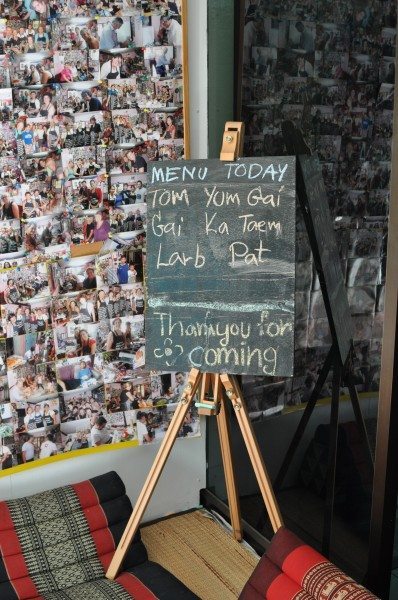 MENU TODAY
Tom Yum Gai
Gai Ka Taem
Larb Pat
Thankyou for
coming